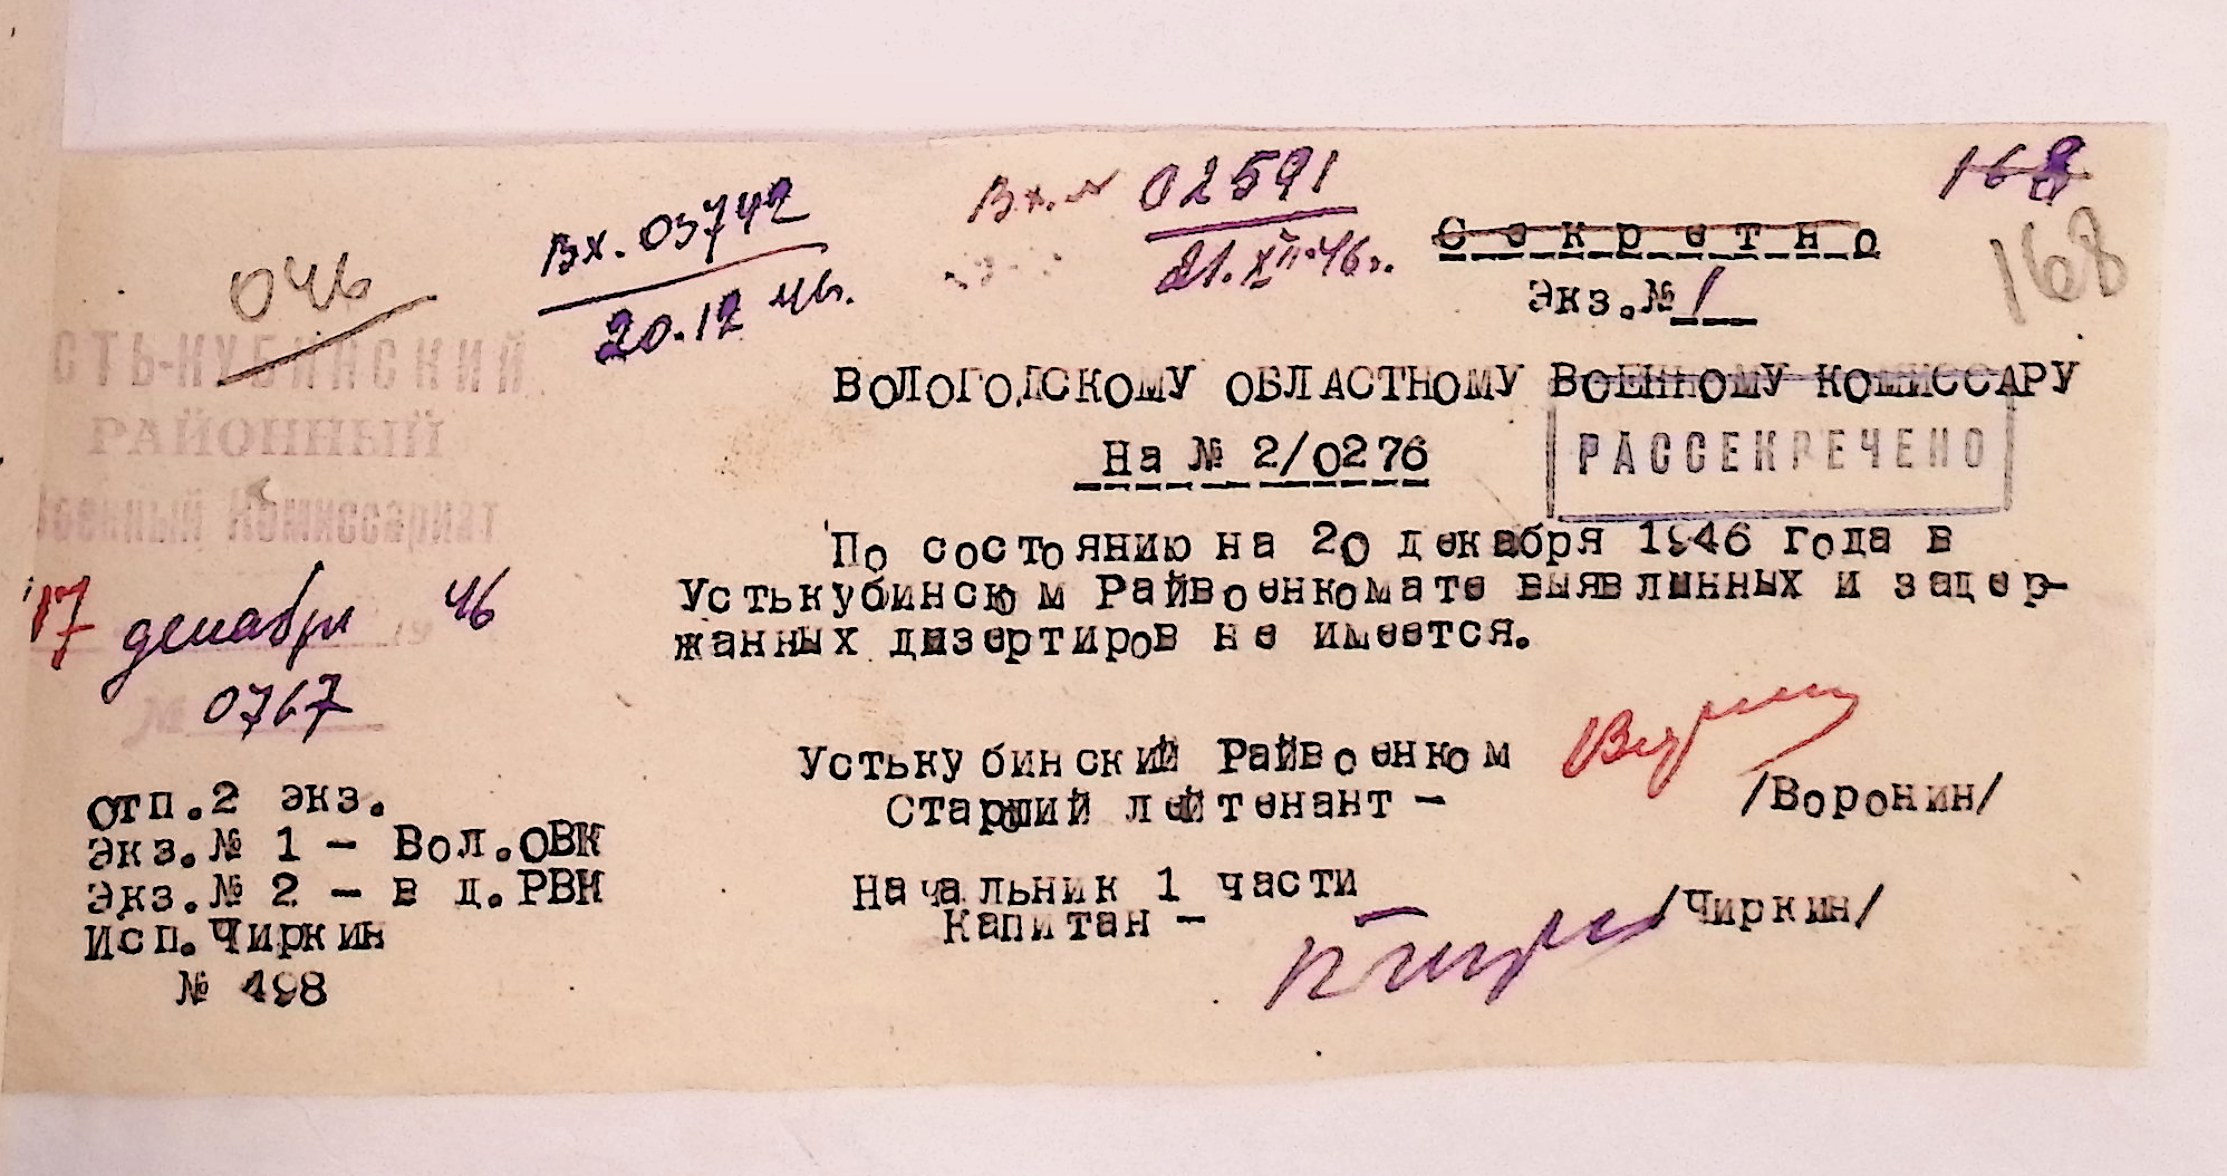 168
168
Вх. 03742
20.12 46.
Вх. № 02591
21.XII.46г.
Секретно
Экз.№ 1
046
СТЬ-КУБИНСКИЙ
РАЙОННЫЙ
военный Комиссариат
17 декабря 1946
№ 0767
ВОЛОГОДСКОМУ ОБЛАСТНОМУ ВОЕННОМУ КОМИССАРУ
На № 2/0276
РАССЕКРЕЧЕНО
По состоянию на 20 декабря 1946 года в
Устькубинском Райвоенкомате выявленных и задер-
жанных дизертиров не имеется.
Устькубинский Райвоенком
Старший лейтенант - /Воронин/
Начальник 1 части
Капитан - /Чиркин/
отп.2 экз.
Экз.№ 1 - Вол.ОВК
Экз.№ 2 - в д.РВК
Исп.Чиркин
№ 498